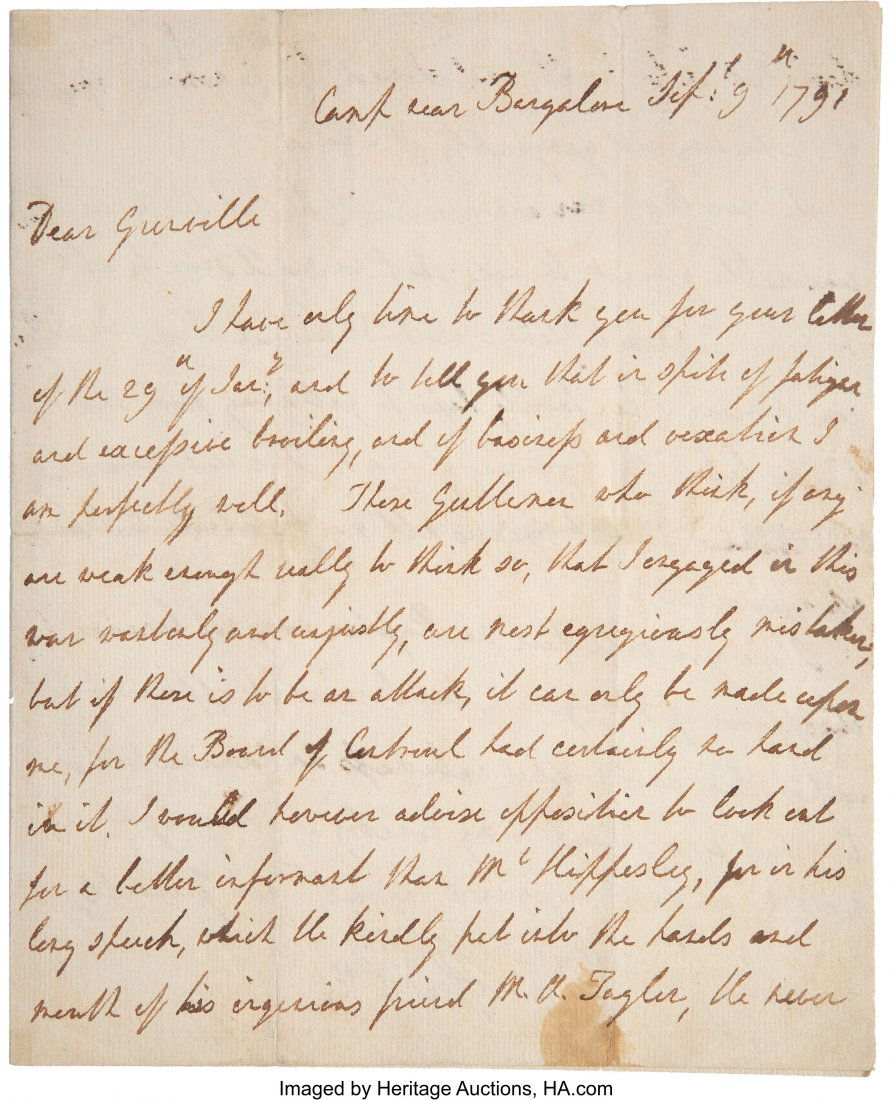 Camp near Bangalore Sep:t 9th 1791
Dear Grenville
I have only time to thank you for your letter
of the 29th of Jan:y, and to tell you that in spite of fatigue
and excessive broiling, and of business and vexation I
am perfectly well. Those Gentlemen who think, if any
are weak enough really to think so, that I engaged in this
war wantonly and unjustly, are most egregiously mistaken,
but if there is to be an attack, it can only be made upon
me, for the Board of Controul had certainly no hand
in it. I would however advise opposition to look out
for a better informant than Mr Hippesley, for in his
long speech, which He kindly put into the hands and
mouth of his ingenious friend M. A. Taylor, He never
Imaged by Heritage Auctions, HA.com